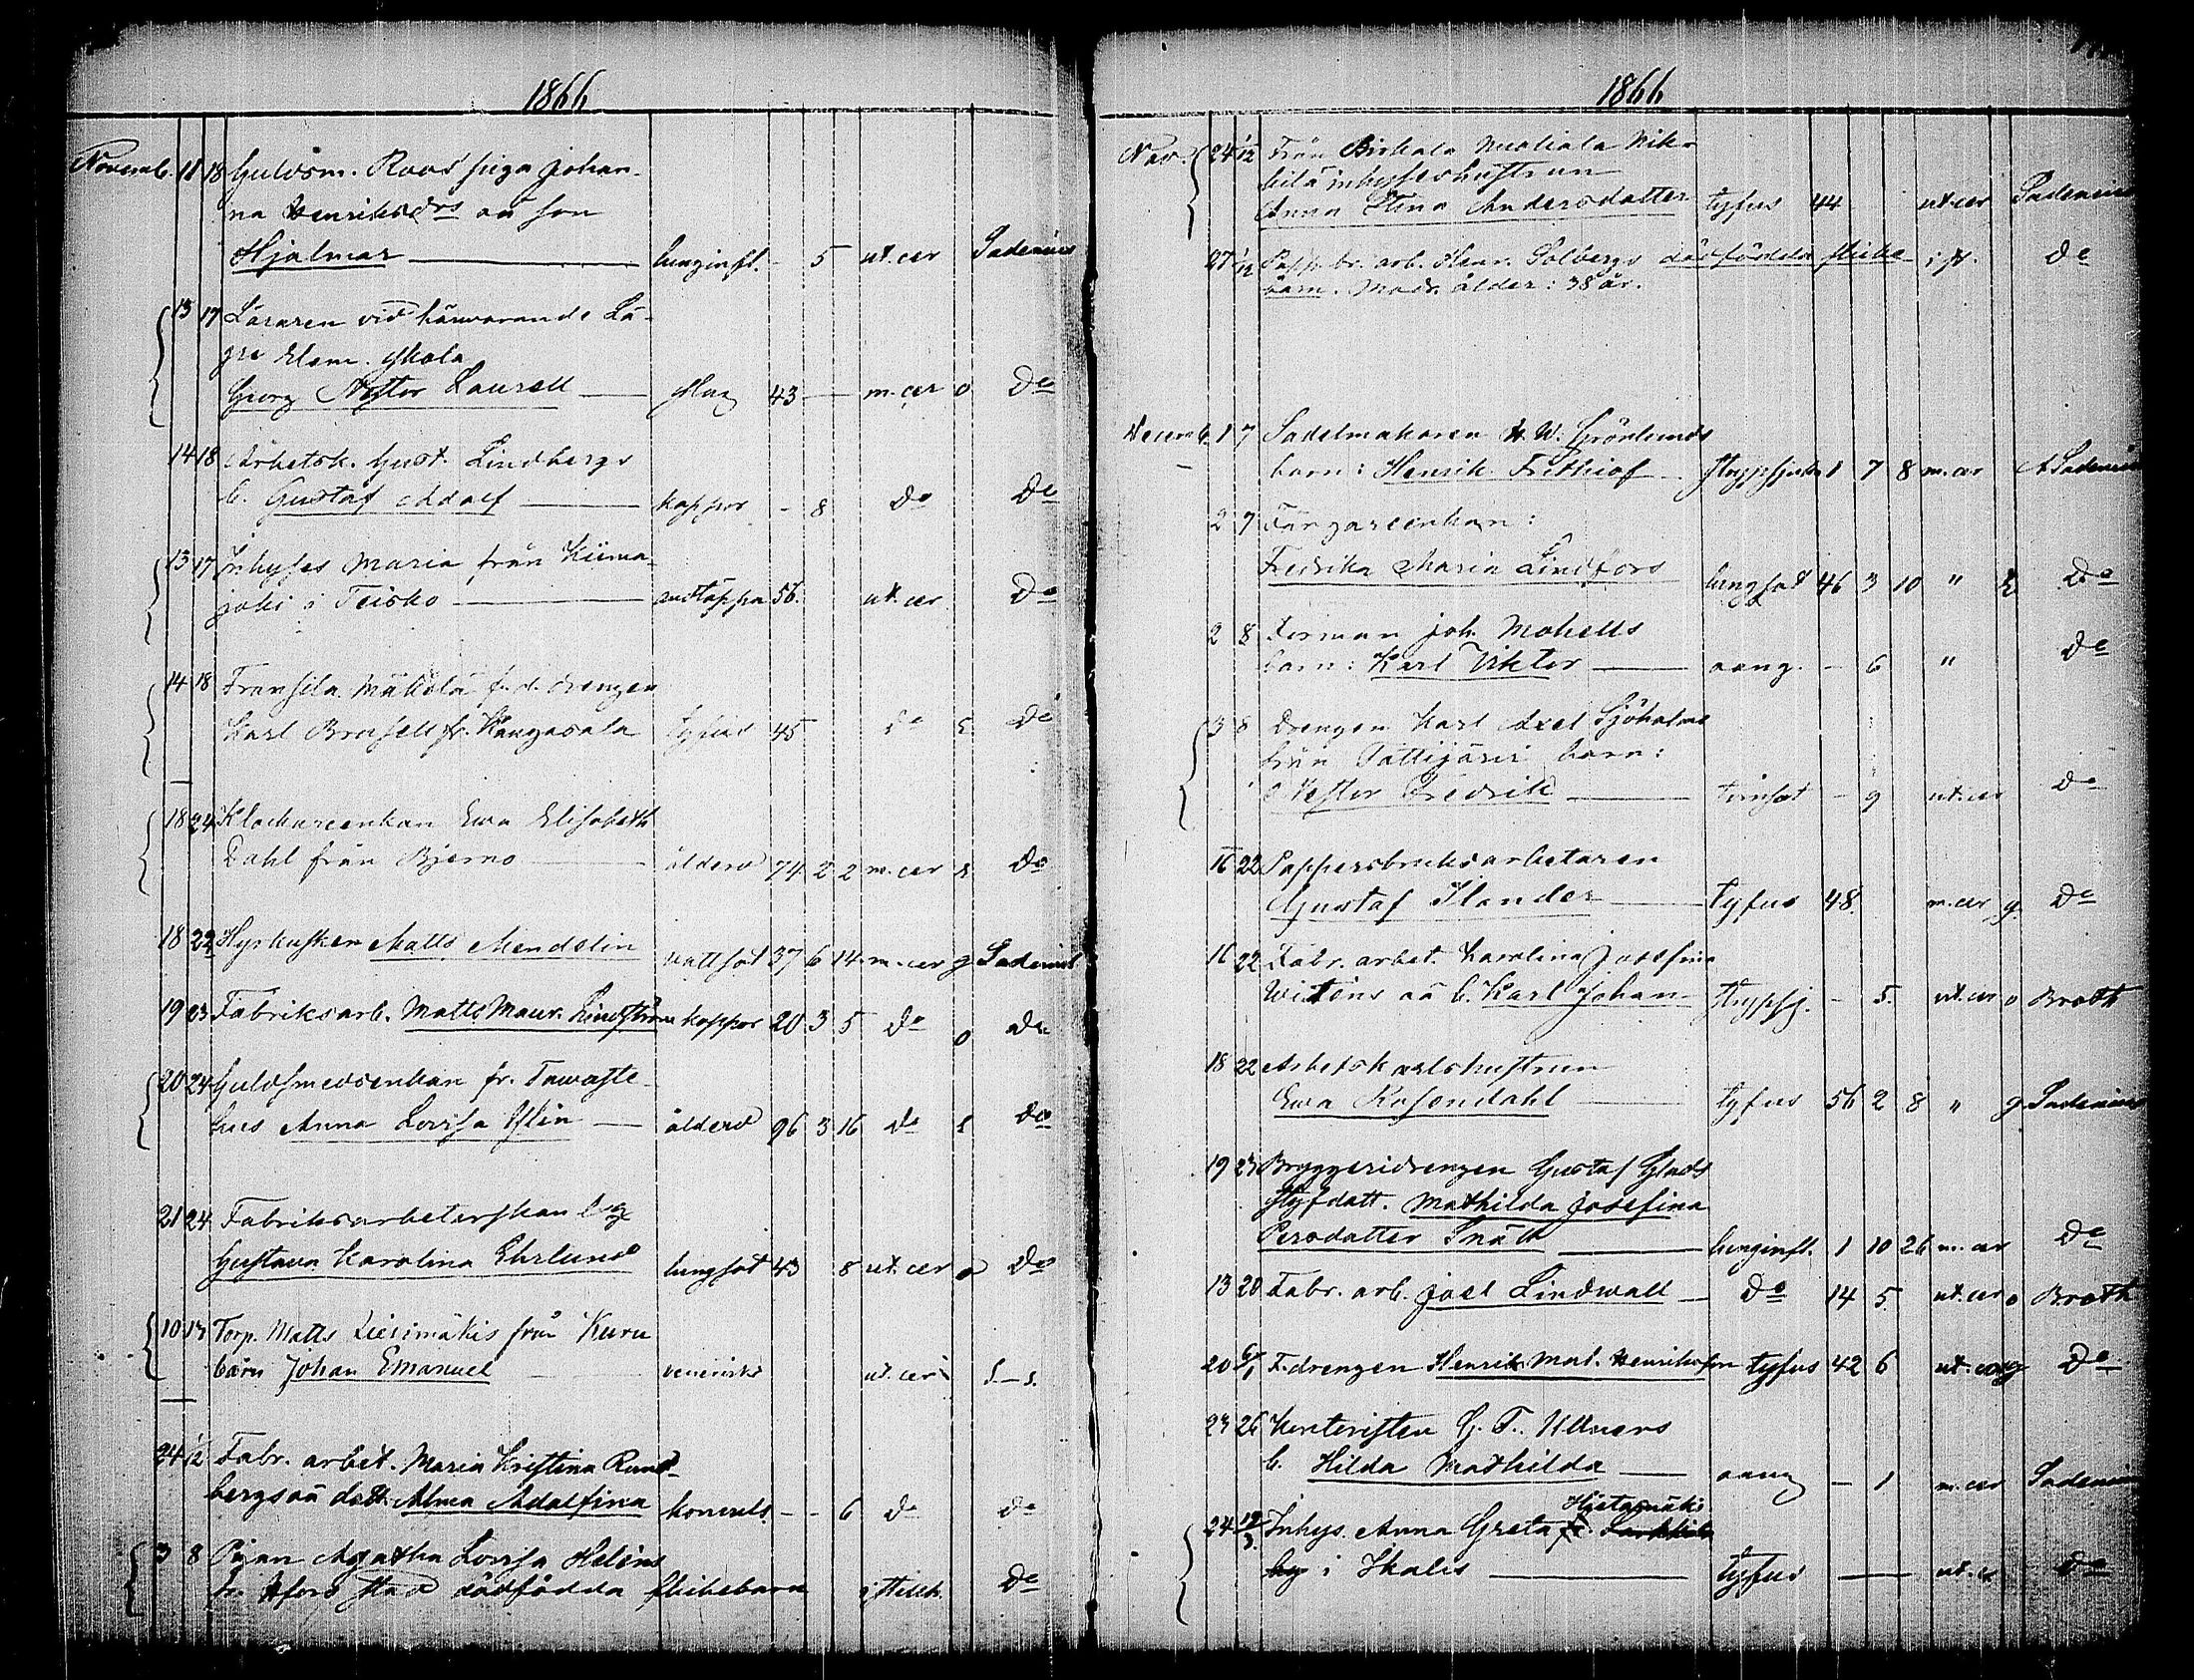 1866
Novemb. 11 18 Guldsm. Roos' piga Johan-
na Henriksdrs oä son
Hjalmar lunginfl. - 5 ut. cer Sadenius
13 17 Läraren vid härvarande Lä-
gre Elem. skola
Georg Nestor Laurell slag 43 m. cer o Do
14 18 Arbetsk. Gust. Lindbergs
b. Gustaf Adolf koppor - 8 Do Do
13 17 Inhyses Maria från Kiima-
joki i Teisko andtäppa 56. ut. cer Do
14 18 Fransila Mäkelä f. d. drengen
Karl Brusell fr. Kangasala tyfus 45 Do E Do
18 24 Klockareenkan Ewa Elisabeth
Dahl från Bjerno ålderd 74 2 2 m. cer E Do
18 22 Hyrkusken Matts Mendelin vattsot 37 6 14 m. cer g Sadenius
19 23 Fabriksarb. Matts Maur. Lindström koppor 20 3 5 Do o Do
20 24 Guldsmedsenkan fr. Tawaste-
hus Anna Lovisa Islin ålderd 96 3 16 Do E Do
21 24 Fabriksarbeterskan
Gustava Karolina Ehrlund lungsot 43 8 ut. cer o Do
10 13 Torp. Matts Liesimäkis från Kuru
barn Johan Emanuel venerisk ut. cer S-s.
24 1/12 Fabr. arbet. Maria Kristina Rund-
bergs oä dott. Alma Adolfina konvuls. - - 6 Do Do
3 8 Pigan Agatha Lovisa Heléns
fr. Hfors stad dödfödda flickebarn i stillh. Do
1866
Nov. 24 1/12 Från Birkala
inhyseshustrun
Anna Stina Andersdotter tyfus 44 ut. cer Sadenius
27 1/12 Papp. br. arb. Henr. Solbergs dödfödda flicke-
barn. Modr. ålder: 38 år. i st. Do
Decemb. 1 7 Sadelmakaren H. W. Grönlunds
barn: Henrik Frithiof strypsjuka 1 7 8 m. cer A Sadenius
2 7 Färgareenkan:
Fredrika Maria Lindfors lungsot 46 3 10 " E Do
2 8 Forman Joh. Mohells
barn: Karl Viktor oang. - 6 " Do
3 8 Drengen Karl Axel Sjöholms
från Tottijärvi barn:
Nestor Fredrik tvinsot - 9 ut. cer Do
16 22 Pappersbruksarbetaren
Gustaf Ilander tyfus 48. m. cer g Do
16 22 Fabr. arbet. Karolina Josefina
Witéns oä b. Karl Johan strypsj. - 5. ut. cer o Broth
18 22 Arbetskarlshustrun
Ewa Rosendahl tyfus 56 2 8 " g Sadenius
19 23 Bryggeridrengen Gustaf Glads
styfdott. Mathilda Josefina
Persdotter Snäll lunginfl. 1 10 26 m. cer Do
13 20 Fabr. arb. Joel Lindwall Do 14 5 ut. cer o Broth
20 6/1 F. drengen Henrik Mat. Henriksson tyfus 42 6 ut. cer g Do
23 26 Kontoristen G. F. Ullners
b. Hilda Mathilda oang - 1 m. cer Sadenius
Hietamäki
24 12/3 Inhys. Anna Greta fr.
by i Ikalis tyfus ut. c Do